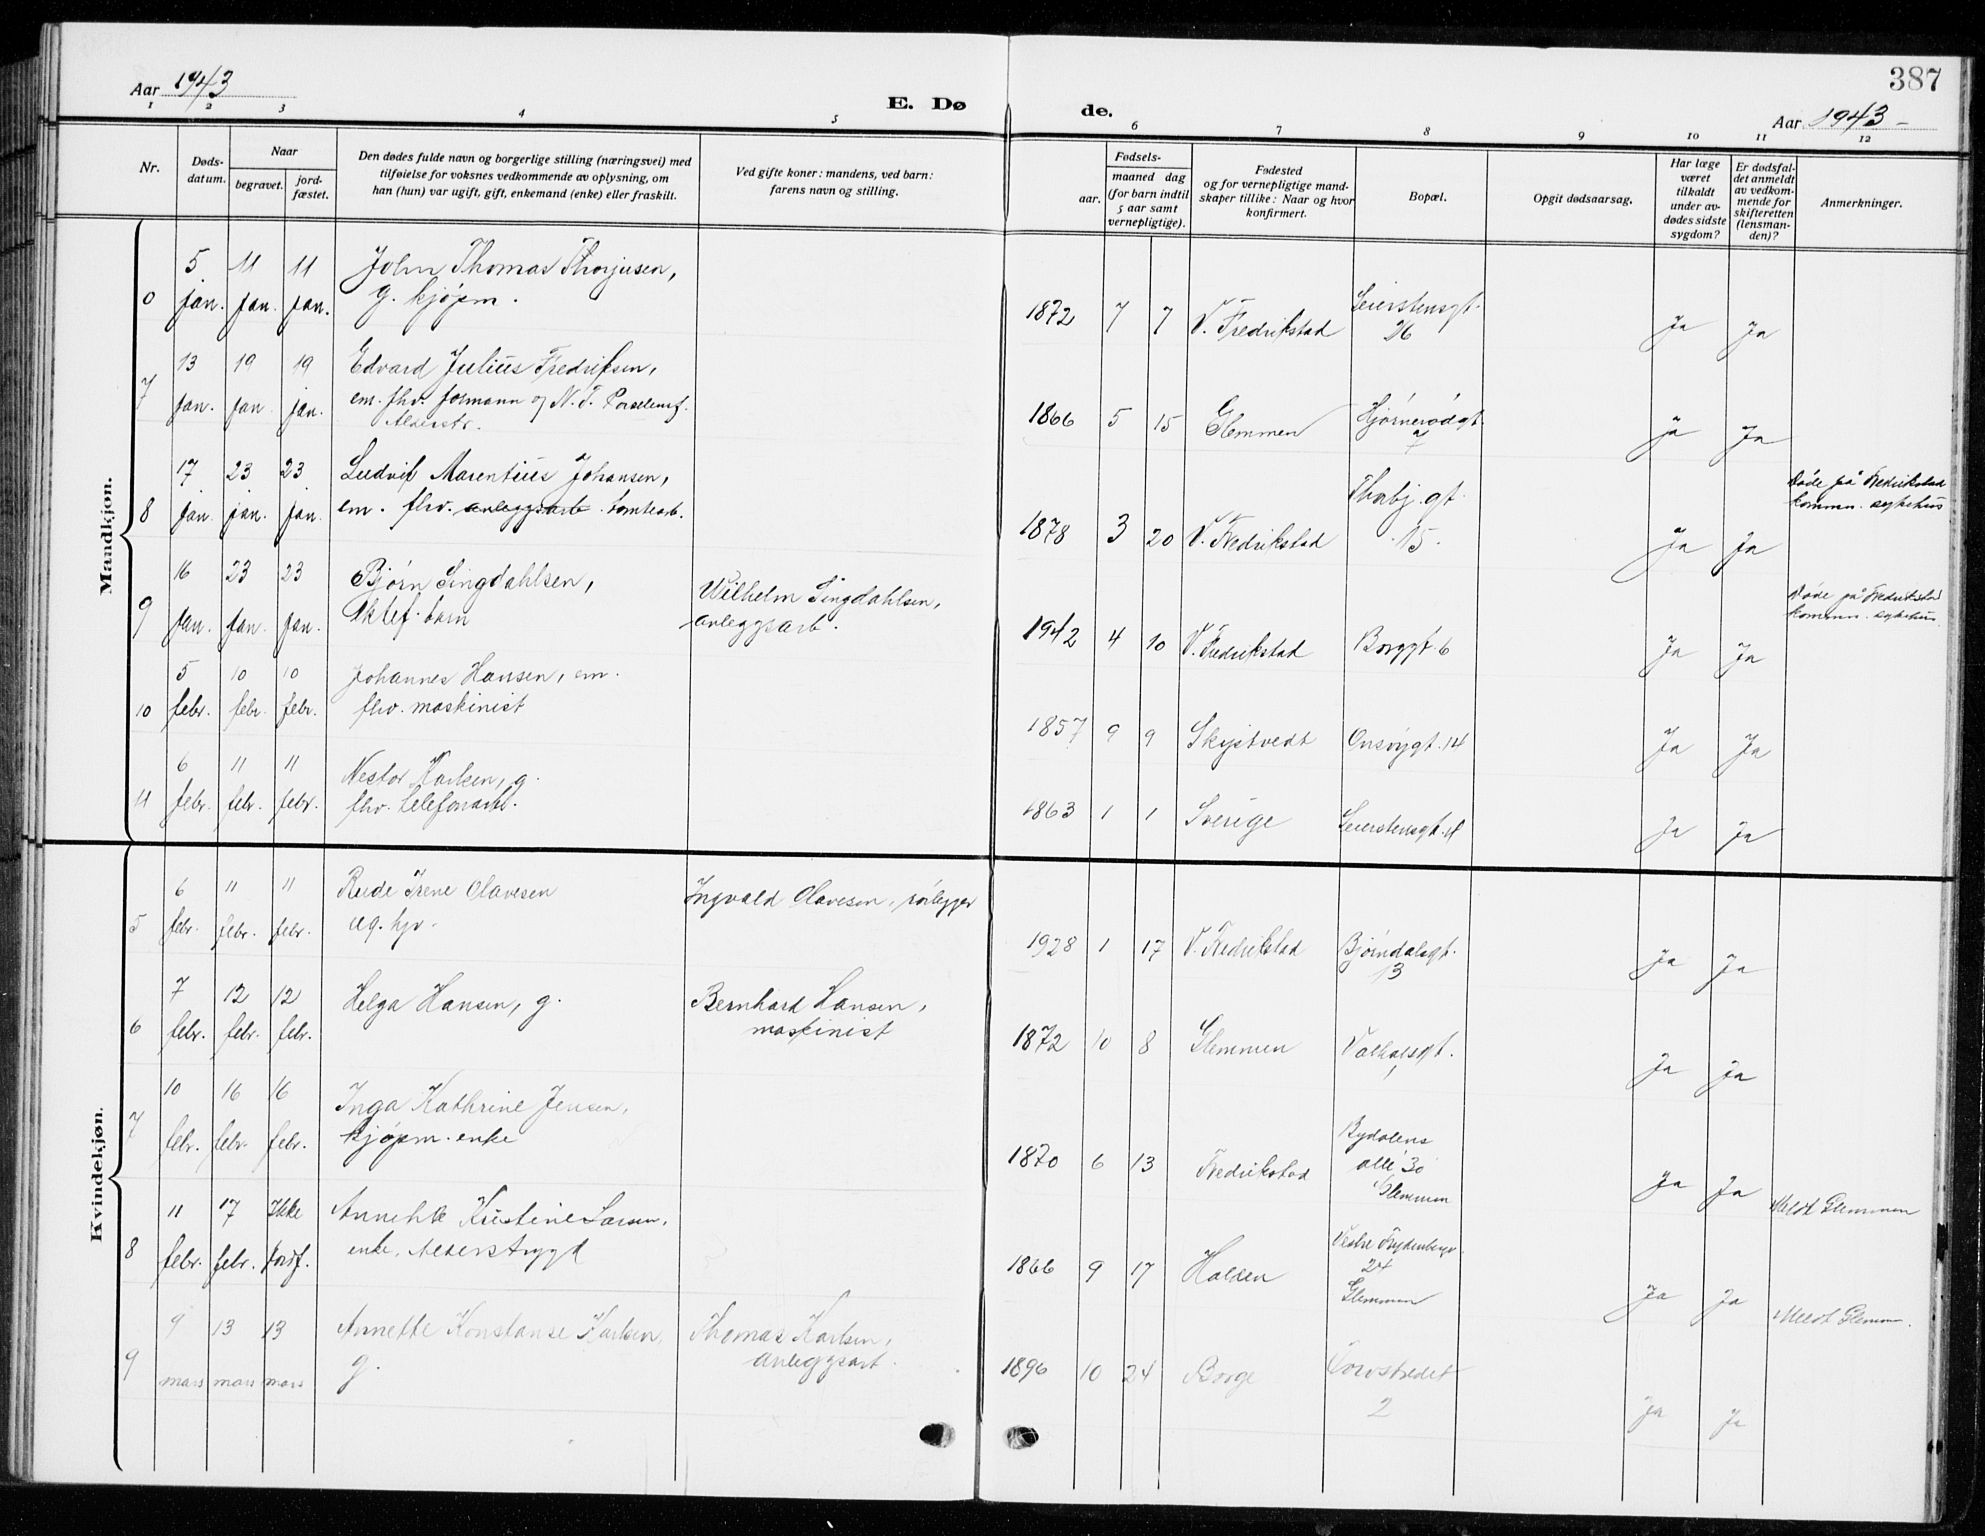 387
Aar 1943
E. Dø de.
Aar 1943 -
1 2 3 4 5 6 7 8 9 10 11 12
Nr.
Døds-
datum.
Naar
begravet.
jord-
fæstet.
Den dødes fulde navn og borgerlige stilling (næringsvei) med
tilføielse for voksnes vedkommende av oplysning, om
han (hun) var ugift, gift, enkemand (enke) eller fraskilt.
Ved gifte koner: mandens, ved barn:
farens navn og stilling.
Fødsels-
aar.
maaned dag
(for barn indtil
5 aar samt
vernepligtige).
Fødested
og for vernepligtige mand-
skaper tillike: Naar og hvor
konfirmert.
Bopæl.
Opgit dødsaarsag.
Har læge
været
tilkaldt
under av-
dødes sidste
sygdom?
Er dødsfal-
det anmeldt
av vedkom-
mende for
skifteretten
(lensman-
den)?
Anmerkninger.
Maandkjøn.
5 11 11 John Thomas Thorjusen,
jan. jan. jan. g. kjøpm.
1872 7 7 V. Fredrikstad Seierstensgt. 26 Ja Ja
13 19 19 Edvard Julius Fredriksen,
7 jan. jan. jan. em. fhv. formann v/ N. T. Porselensf.
Alderstr.
1866 5 15 Glemmen Hjørnerødgt. 7 Ja Ja
17 23 23 Ludvik Marentius Johansen,
8 jan. jan. jan. em. fhv. anleggsarb. tomtearb.
1878 3 20 V. Fredrikstad Thorbj. gt. 15. Ja Ja
Døde på Fredrikstad
kommun. sykehus
16 23 23 Bjørn Lingdahlsen,
9 jan. jan. jan. Ektef. barn
Wilhelm Lingdahlsen,
anleggsarb.
1942 4 10 V. Fredrikstad Borggt. 6 Ja Ja
Døde på Fredrikstad
kommun. sykehus.
5 10 10 Johannes Hansen, em.
10 febr. febr. febr. fhv. maskinist
1857 9 9 Skjptvedt Onsøygt. 14 Ja Ja
6 11 11 Nestor Karlsen, g.
11 febr. febr. febr. fhv. telefonarb.
1863 1 1 Sverige Seierstensgt. Ja Ja
Kvindekjøn.
6 11 11 Rude Irene Olavesen
5 febr. febr. febr. ug. hjv.
Ingvald Olavesen, rørlegger
1928 1 17 V. Fredrikstad Bjørndalsgt. 13 Ja Ja
7 12 12 Helga Hansen, g.
6 febr. febr. febr.
Bernhard Hansen,
maskinist
1872 10 8 Glemmen Valhalsgt. 1 Ja Ja
10 16 16 Inga Kathrine Jensen,
7 febr. febr. febr. kjøpm. enke
1870 6 13 Fredrikstad Bydalens
allé 30
Glemmen Ja Ja
Meldt Glemmen
11 17 Ikke Annette Kristine Larsen,
8 febr. febr. jordf. enke, Alderstrygd
1866 9 17 Halden Vestre Frydenbergv.
24
Glemmen Ja Ja
Meldt Glemm.
9 13 13 Annette Konstanse Karlsen,
9 mars mars mars g.
Thomas Karlsen,
anleggsarb.
1896 10 24 Borge Torvstredet
2 Ja Ja